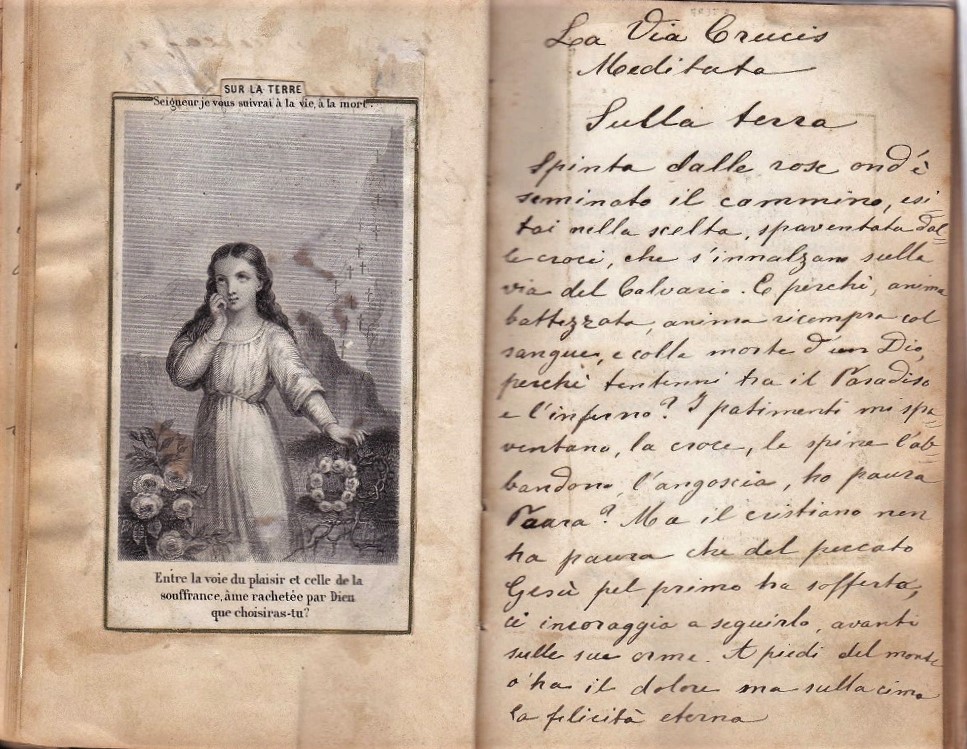 SUR LA TERRE
Seigneur, je vous suivrai à la vie, à la mort.
Entre la voie du plaisir et celle de la
souffrance, âme rachetée par Dieu
que choisiras-tu?
La Via Crucis
Meditata
Sulla terra
Spinta dalle rose ond'è
seminato il cammino, esi-
tai nella scelta, spaventata dal-
le croci, che s'innalzano sulla
via del Calvario. E perchè, anima
battezzata, anima ricompra col
sangue, e colla morte d'un Dio,
perchè tentenni tra il Paradiso
e l'inferno? I patimenti mi spa-
ventano, la croce, le spine l'ab-
bandono, l'angoscia, ho paura
Paura? Ma il cristiano non
ha paura che del peccato
Gesù pel primo ha sofferto,
ci incoraggia a seguirlo, avanti
sulle sue orme. A piedi del monte
v'ha il dolore ma sulla cima
la felicità eterna